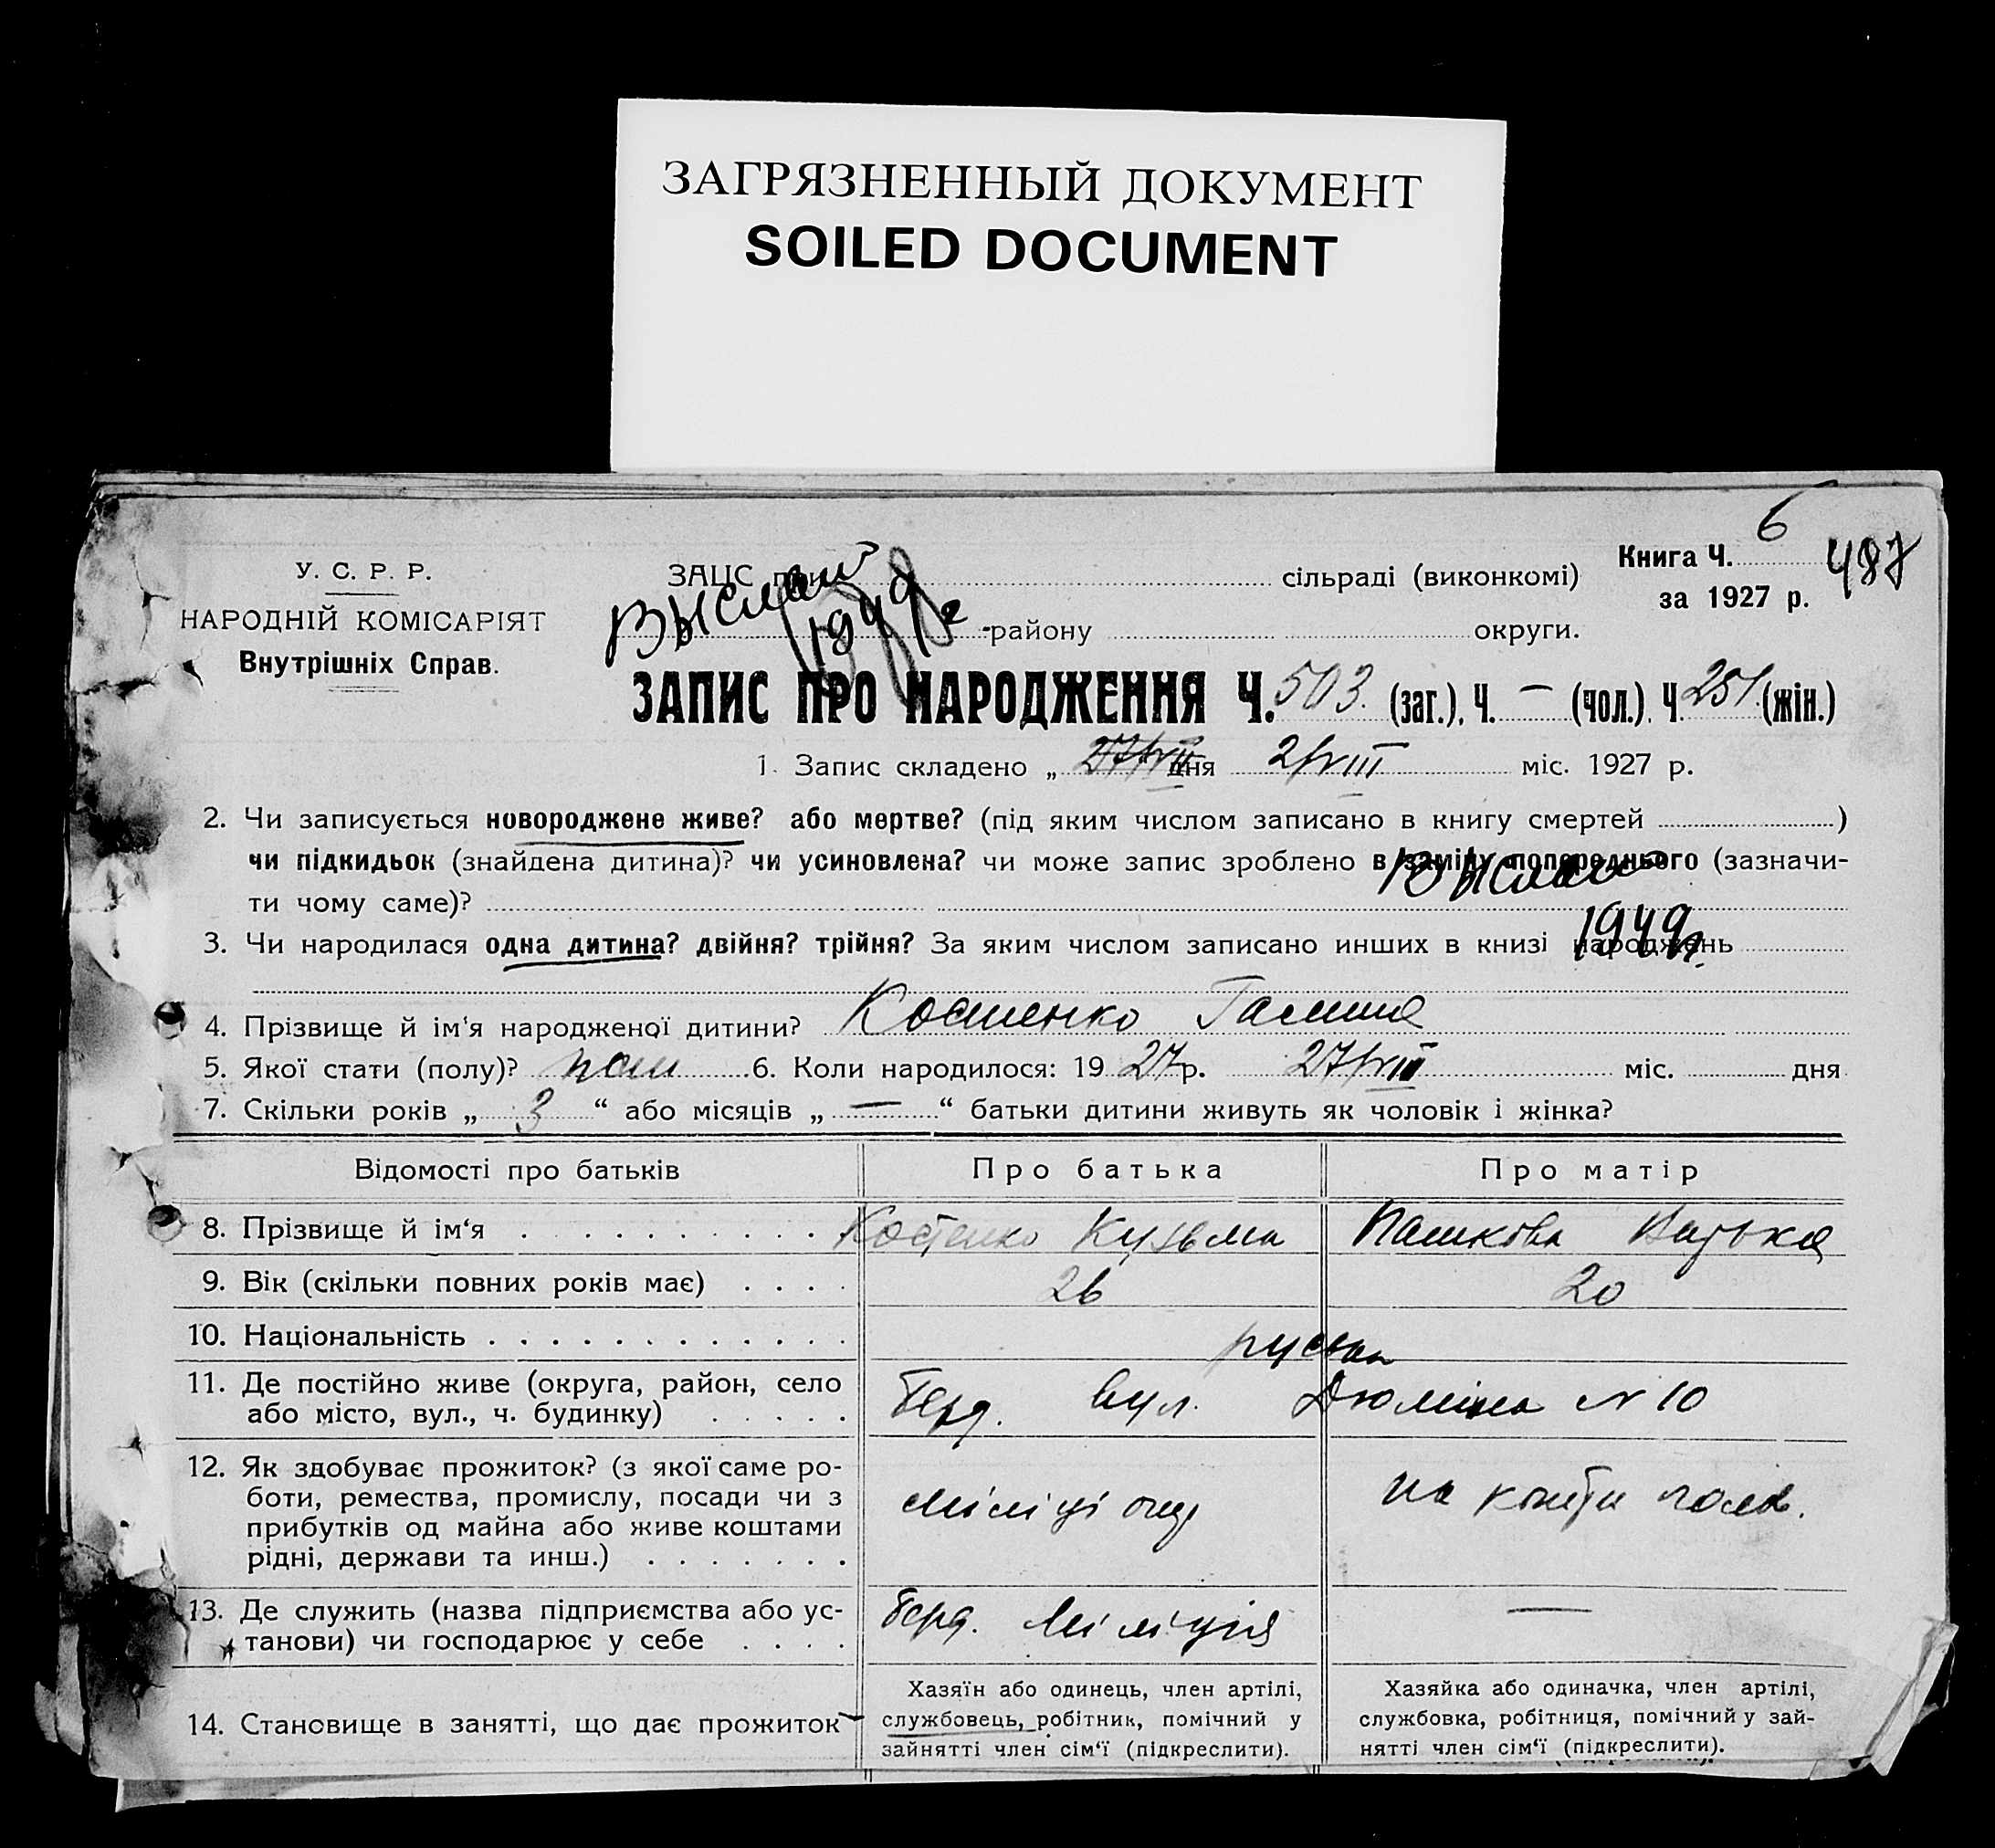 ЗАГРЯЗНЕННЫЙ ДОКУМЕНТ
SOILED DOCUMENT
6
Книга Ч. 487
за 1927 р.
У. С. Р. Р.
НАРОДНІЙ КОМІСАРІЯТ
Внутрішніх Справ.
ЗАЦС при сільраді (виконкомі)
району округи.
Выслан
1949 г
ЗАПИС ПРО НАРОДЖЕННЯ Ч. 503. (заг.), Ч. — (чол.). Ч. 251. (жін.)
1. Запис складено „ 27/VII дня 2/VIII міс. 1927 р.
2. Чи записується новороджене живе? або мертве? (під яким числом записано в книгу смертей )
чи підкидьок (знайдена дитина)? чи усиновлена? чи може запис зроблено в заміну попореднього (зазначи-
ти чому саме)?
Выслан
1949г.
3. Чи народилася одна дитина? двійня? трійня? За яким числом записано инших в книзі народжень
4. Прізвище й ім‘я народженої дитини? Костенко Галина
5. Якої стати (полу)? 6. Коли народилося: 1927р. 27/VII міс. дня
7. Скільки років „ 3 “ або місяців „ — “ батьки дитини живуть як чоловік і жінка?
Відомості про батьків Про батька Про матір
8. Прізвище й ім‘я Костенко Кузьма Пашкова
9. Вік (скільки повних років має) 26 20
10. Національність руськ
11. Де постійно живе (округа, район, село
або місто, вул., ч. будинку) Берд. вул. Дюміна № 10
12. Як здобуває прожиток? (з якої саме ро-
боти, ремества, промислу, посади чи з
прибутків од майна або живе коштами
рідні, держави та инш.) міліціонер на кошти чолов.
13. Де служить (назва підприємства або ус-
танови) чи господарює у себе Берд. Міліція —
14. Становище в занятті, що дає прожиток
Хазяїн або одинець, член артілі,
службовець, робітник, помічний у
зайнятті член сім‘ї (підкреслити).
Хазяйка або одиначка, член артілі,
службовка, робітниця, помічний у зай-
нятті член сім‘ї (підкреслити).